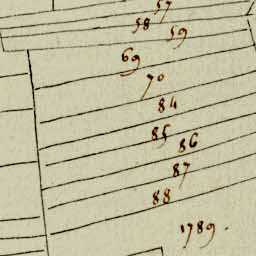 57
58
59
69
70
84
85
86
87
88
1789.